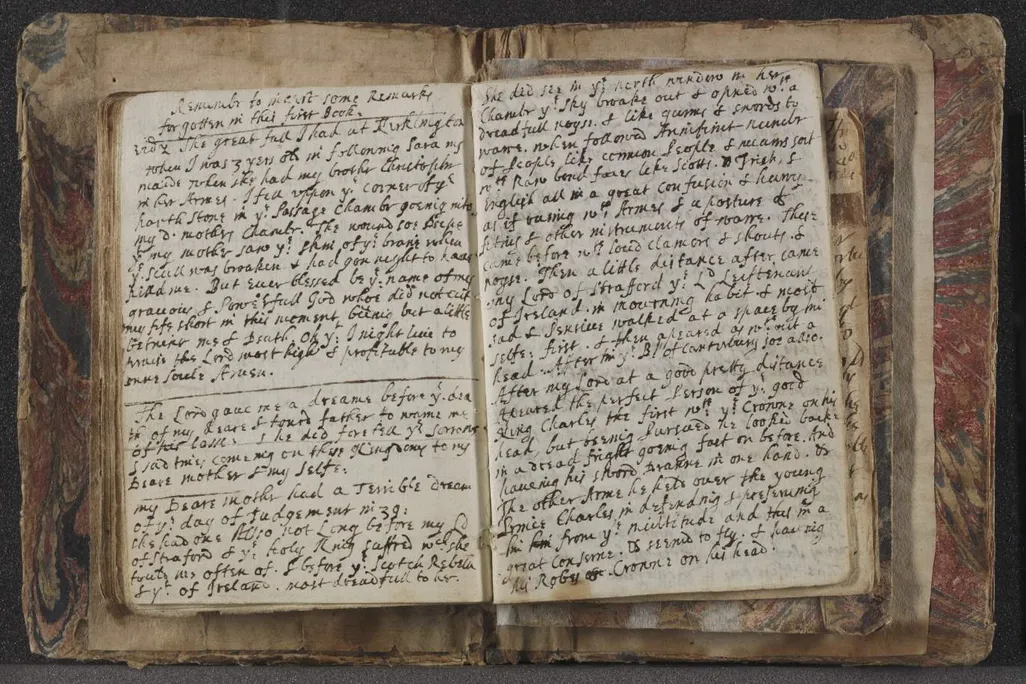 Remembr to incist some Remarks
forgotten in this first Book.
The great fall I had at Kirkington
when I was 3 yers old in following Sara my
maide when she had my brother Christophr
in her Armes. I fell upon yᵉ corner of yᵉ
harth stone in yᵉ Passage Chambr goeing into
my d. mothers Chambr. The wound soe Deepe
yᵗ my mother saw yᵉ skin of yᵉ brane when
yᵉ Scull was broaken & had gon night to have
killd me. But ever blessed be yᵉ name of my
gravious & Powerfull God whoe did not cutt
my life short in this moment beinig but a little
betwixt me & Death. Oh yᵗ I night live to
the Lord most high & profitable to my
owne Soule Amen.
The Lord gave me a dreame before yᵉ dea
th of my Deare & honrd father to warne me
of his losse. & she did foretell yᵉ sorrows
& sad times comeing on these Kingdoms to my
Deare mother & my selfe.
my Deare mothr had a Terrible dream
of yᵉ day of Judgement in 39:
she had one Also not Long before my Ld
of Straford & yᵉ holy King suffred wch she
tould me often of. & before yᵉ Scotch Rebelli
& yᵗ of Ireland. most dreadfull to her.
She did see in yᵉ north window in her
Chambr yᵉ sky broake out & opned wᵗʰ a
dreadfull noyse. & like gunns & swords to
warre. when followed Annifinit numbr
of People like common People & meaner sort
wᵗʰ Raw bond faces like Scotts. & Irish, &
English all in a great confusion & hurry
as if runing wᵗʰ Armes & a posture of
& other instruments of warre. These
came before wᵗʰ loud clamors & shouts. &
noyse. Then a little distance after came
my Lord of Strafford yᵉ Ld Leiftenant
of Ireland. in mourning habit & most
sad & Pensive walked at a space by him
selfe. first. & then apeared as wᵗʰout a
head. After him yᵉ Bp of Canterbury soe also.
After my Lord at a good pretty distance
Apeared the perfect Person of yᵉ good
King Charles the first wᵗʰ yᵉ Crowne on his
head, but beeing Pursued he looked backe
in a dread fright goeing fast on before. And
haveing his sword drawne in one hand. &
the other Arme he held over the young
Prince Charles in defending & preserving
him from yᵉ multitude and this in a
great Conserne. & seemed to fly. & having
his Roby & Crowne on his head.